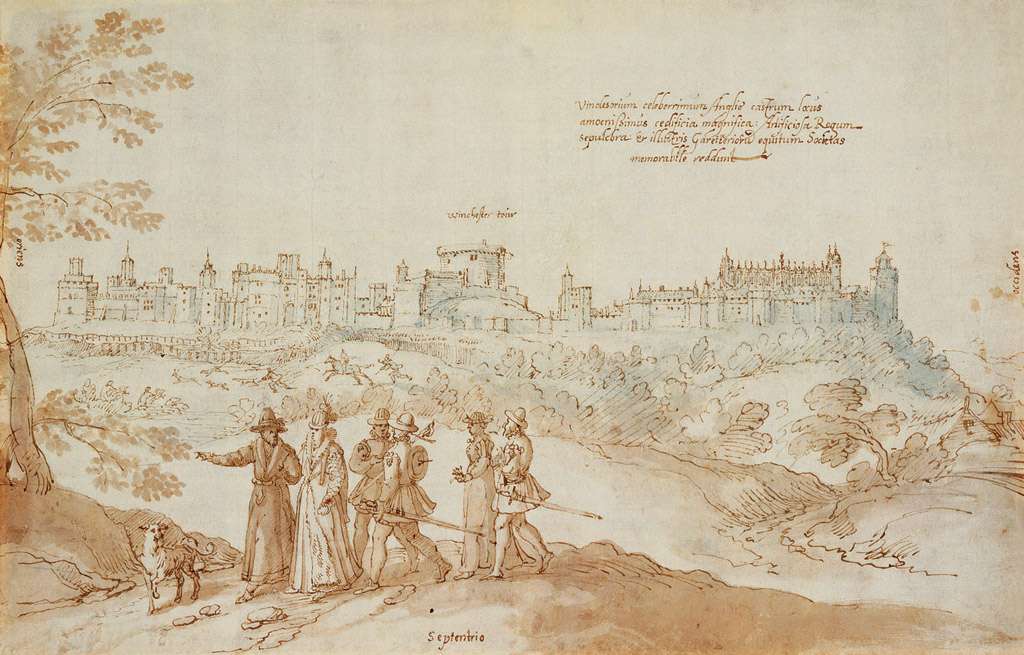 Vindesorium celeberrimum Angliæ castrum locus
amoenissimus ædificia magnifica: Artificiosa Regum
sepulchra Et illustris Garetteriorū equitum Societas
memorabile reddunt
Winchester tour
oriens
occidens
Septentrio